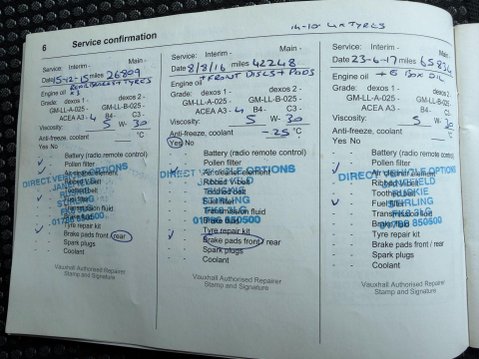 6 Service confirmation
Service: Interim - Main -
Date 15-12-15 miles 26809
REAR
Engine oil
Grade: dexos 1 - dexos 2 -
GM-LL-A-025 - GM-LL-B-025 -
ACEA A3 - 4 B4- C3 -
Viscosity: 5 W- 30
Anti-freeze, coolant °C
Yes No
Battery (radio remote control)
Pollen filter
Air cleaner element
Ribbed V-belt
Toothed belt
Fuel filter
Transmission fluid
Brake fluid
Tyre repair kit
Brake pads front / rear
Spark plugs
Coolant
DIRECT VEHICLE OPTIONS
STIRLING
01786 850500
Vauxhall Authorised Repairer
Stamp and Signature
Service: Interim - Main -
Date 8/8/16 miles 42248
+ FRONT DISCS + PADS
Engine oil
Grade: dexos 1 - dexos 2 -
GM-LL-A-025 - GM-LL-B-025 -
ACEA A3 - 4 B4- C3 -
Viscosity: 5 W- 30
Anti-freeze, coolant -25 °C
Yes No
Battery (radio remote control)
Pollen filter
Air cleaner element
Ribbed V-belt
Toothed belt
Fuel filter
Transmission fluid
Brake fluid
Tyre repair kit
Brake pads front / rear
Spark plugs
Coolant
DIRECT VEHICLE OPTIONS
STIRLING
01786 850500
Vauxhall Authorised Repairer
Stamp and Signature
TYRES
Service: Interim - Main -
Date 23-6-17 miles 65834
Engine oil + G BOX OIL
Grade: dexos 1 - dexos 2 -
GM-LL-A-025 - GM-LL-B-025 -
ACEA A3 - 4 B4- C3 -
Viscosity: 5 W- 30
Anti-freeze, coolant °C
Yes No
Battery (radio remote control)
Pollen filter
Air cleaner element
Ribbed V-belt
Toothed belt
Fuel filter
Transmission fluid
Brake fluid
Tyre repair kit
Brake pads front / rear
Spark plugs
Coolant
DIRECT VEHICLE OPTIONS
STIRLING
01786 850500
Vauxhall Authorised Repairer
Stamp and Signature